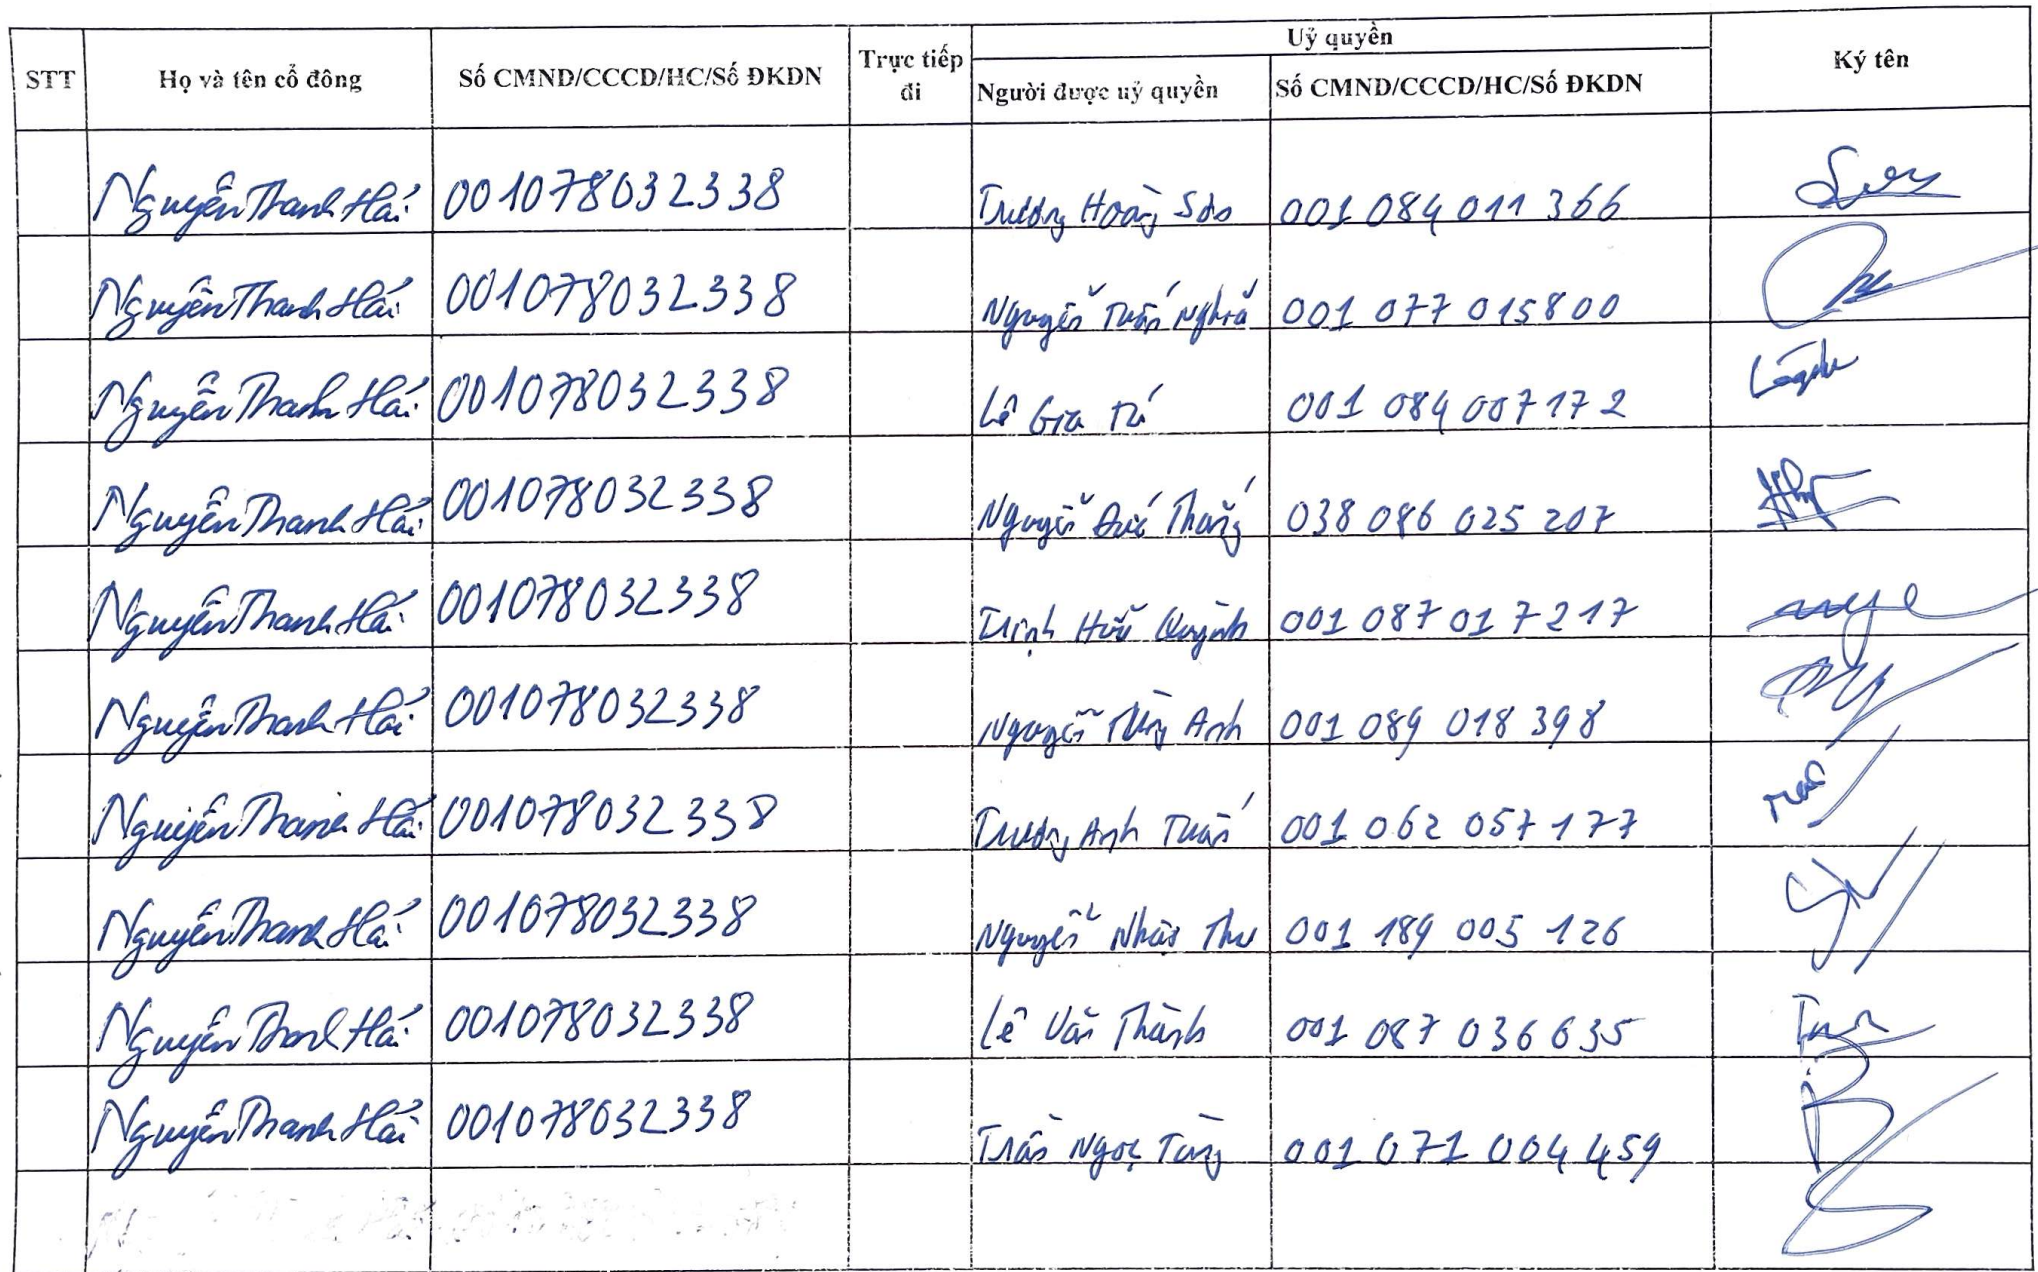 STT Họ và tên cổ đông Số CMND/CCCD/HC/Số ĐKDN Trực tiếp đi Uỷ quyền Ký tên
Người được uỷ quyền Số CMND/CCCD/HC/Số ĐKDN
Nguyễn Thanh Hải 001078032338 Trương Hoàng Sơn 001 084 011 366
Nguyễn Thanh Hải 001078032338 Nguyễn Tuấn Nghĩa 001 077 015800
Nguyễn Thanh Hải 001078032338 Lê Gia Tú 001 084 007172
Nguyễn Thanh Hải 001078032338 Nguyễn Đức Thắng 038 086 025 207
Nguyễn Thanh Hải 001078032338 Trịnh Hữu Quỳnh 001 087 017217
Nguyễn Thanh Hải 001078032338 Nguyễn Tùng Anh 001 089 018 398
Nguyễn Thanh Hải 001078032338 Trương Anh Tuấn 001 062 057177
Nguyễn Thanh Hải 001078032338 Nguyễn Thu 001 189 005 126
Nguyễn Thanh Hải 001078032338 Lê Văn Thành 001 087 036 635
Nguyễn Thanh Hải 001078032338 Trần Ngọc Tùng 001 071 004 459